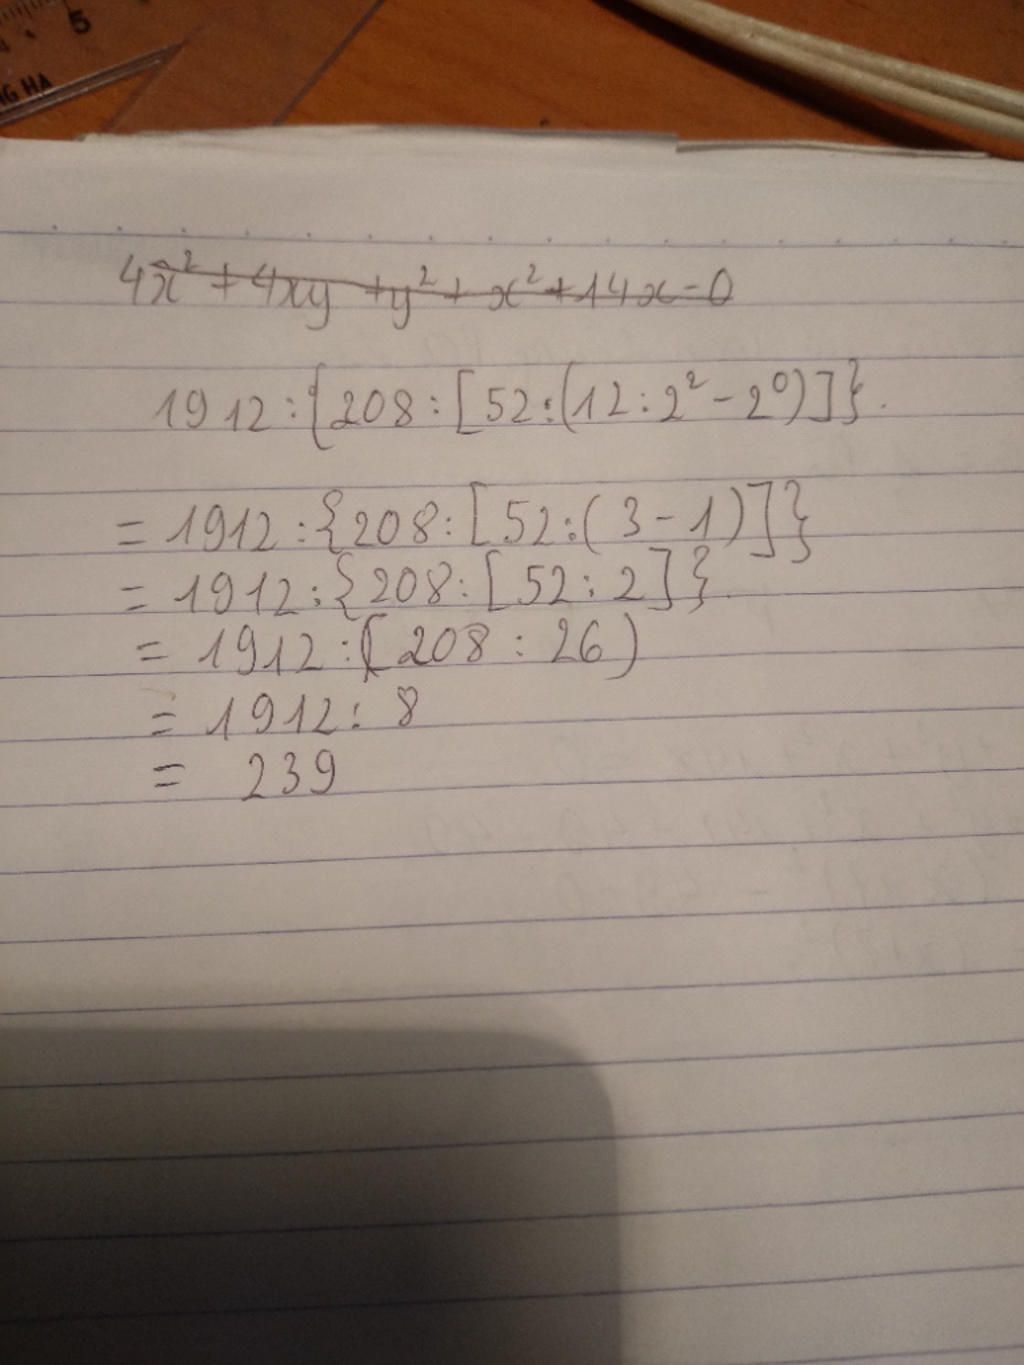 5
NG HA
4x² + 4xy + y² + x² + 14x = 0
1912 : {208 : [52 : (12 : 2² - 2⁰)]}.
= 1912 : {208 : [52 : (3 - 1)]}
= 1912 : {208 : [52 : 2]}.
= 1912 : (208 : 26)
= 1912 : 8
= 239